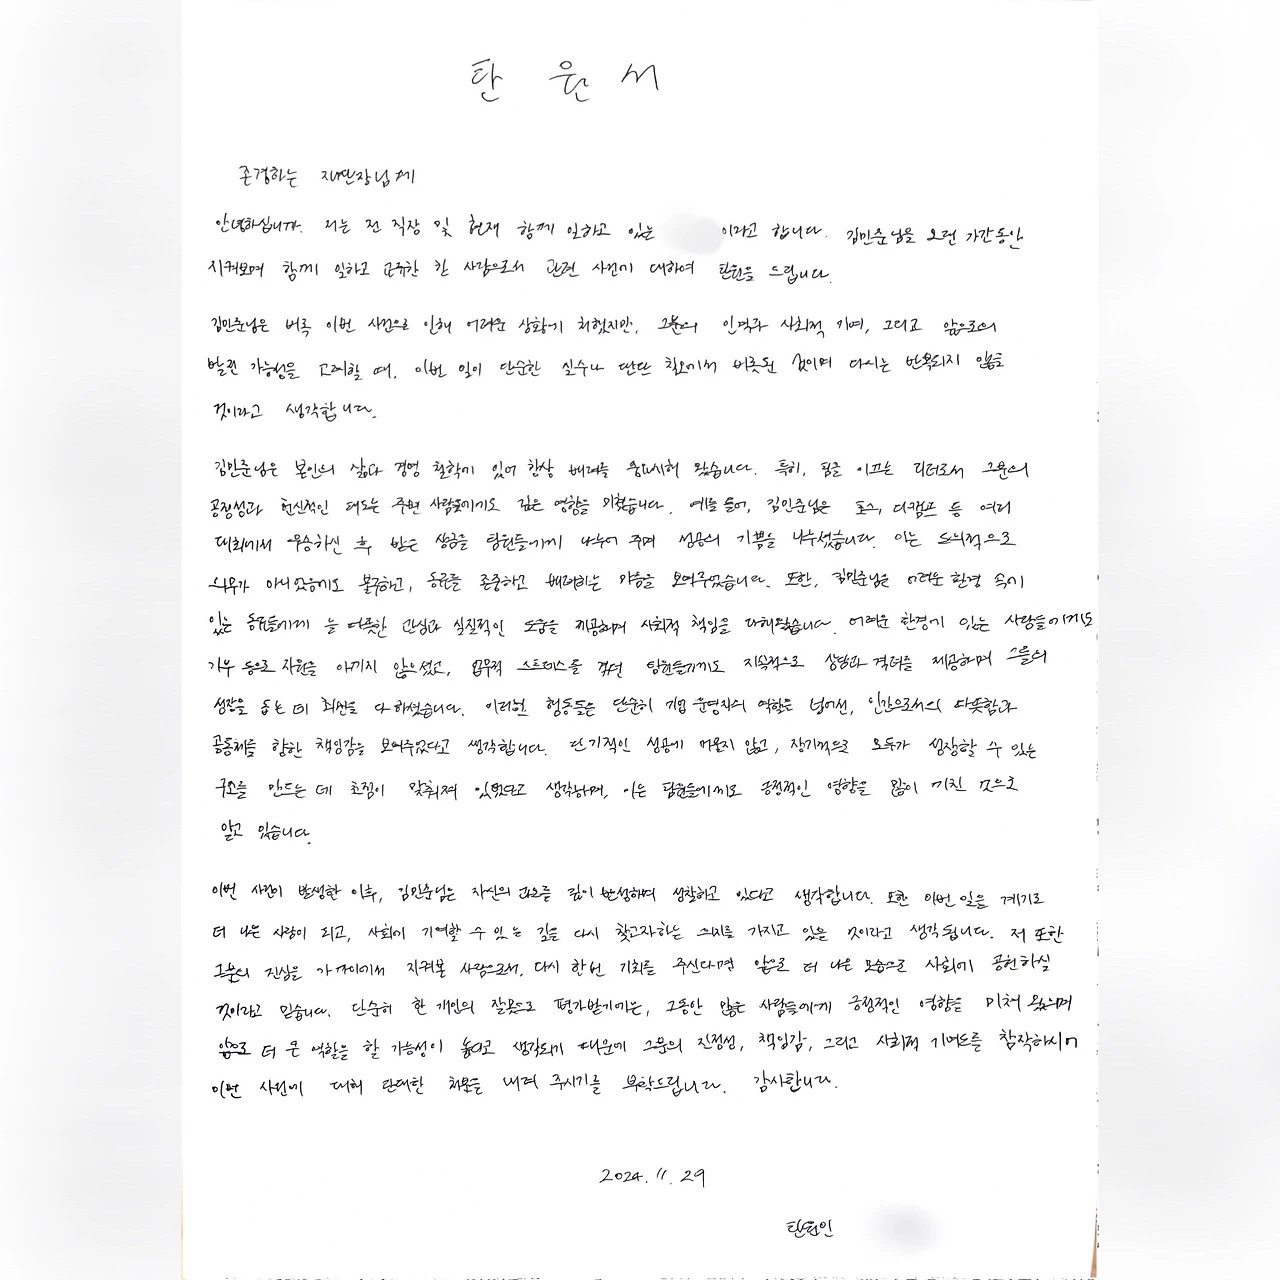 탄 원 서
존경하는 재판장님께
안녕하십니까. 저는 전 직장 및 현재 함께 일하고 있는 이라고 합니다. 김민준님을 오랜 기간동안
지켜보며 함께 일하고 교류한 한 사람으로서 관련 사건에 대하여 탄원을 드립니다.
김민준님은 비록 이번 사건으로 인해 어려운 상황에 처했지만, 그분의 인덕과 사회적 기여, 그리고 앞으로의
발전 가능성을 고려할 때, 이번 일이 단순한 실수나 판단 착오에서 비롯된 것이며 다시는 반복되지 않을
것이라고 생각합니다.
김민준님은 본인의 삶과 경영 철학에 있어 항상 배려를 중요시해 왔습니다. 특히, 팀을 이끄는 리더로서 그분의
공정성과 헌신적인 태도는 주변 사람들에게도 깊은 영향을 미쳤습니다. 예를 들어, 김민준님은 포스, 디캠프 등 여러
대회에서 우승하신 후 받은 상금을 팀원들에게 나누어 주며 성공의 기쁨을 나누셨습니다. 이는 도의적으로
의무가 아니었음에도 불구하고, 동료를 존중하고 배려하는 마음을 보여주었습니다. 또한, 김민준님은 어려운 환경 속에
있는 동료들에게 늘 따뜻한 관심과 실질적인 도움을 제공하며 사회적 책임을 다해왔습니다. 어려운 환경에 있는 사람들에게도
기부 등으로 자원을 아끼지 않으셨고, 업무적 스트레스를 겪던 팀원들에게도 지속적으로 상담과 격려를 제공하며 그들의
성장을 돕는 데 최선을 다하셨습니다. 이러한 행동들은 단순히 기업 운영자의 역할을 넘어선, 인간으로서의 따뜻함과
공동체를 향한 책임감을 보여주었다고 생각합니다. 단기적인 성공에 머물지 않고, 장기적으로 모두가 성장할 수 있는
구조를 만드는 데 초점이 맞춰져 있었다고 생각하며, 이는 팀원들에게도 긍정적인 영향을 많이 끼친 것으로
알고 있습니다.
이번 사건이 발생한 이후, 김민준님은 자신의 과오를 깊이 반성하며 성찰하고 있다고 생각합니다. 또한 이번 일을 계기로
더 나은 사람이 되고, 사회에 기여할 수 있는 길을 다시 찾고자하는 의지를 가지고 있을 것이라고 생각됩니다. 저 또한
그분의 진심을 가까이에서 지켜본 사람으로서, 다시 한번 기회를 주신다면 앞으로 더 나은 모습으로 사회에 공헌하실
것이라고 믿습니다. 단순히 한 개인의 잘못으로 평가받기에는, 그동안 많은 사람들에게 긍정적인 영향을 미쳐 왔으며
앞으로 더 큰 역할을 할 가능성이 높다고 생각되기 때문에 그분의 진정성, 책임감, 그리고 사회적 기여도를 참작하시어
이번 사건에 대해 관대한 처분을 내려 주시기를 부탁드립니다. 감사합니다.
2024. 11. 29
탄원인